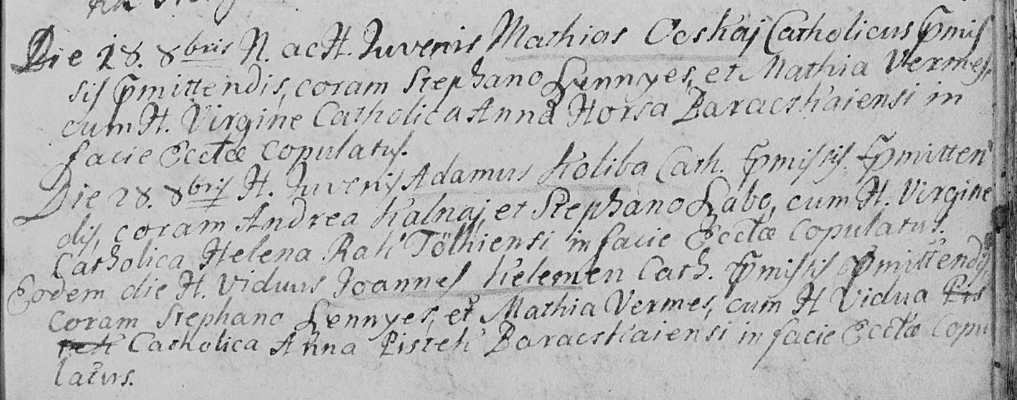 Die 28. 8bris N. ac H. Juvenis Mathias Ocskaj Catholicus P̄mis
sis P̄mittendis, coram Stephano Lennyes, et Mathia Vermes,
cum H. Virgine Catholica Anna Horsa Baracskaiensi in
facie Ecctæ copulatus.
Die 28. 8bris H. Juvenis Adamus Holiba Cath. P̄missis P̄mitten
dis, coram Andrea Kalnaj, et Stephano Labo, cum H. Virgine
Catholica Helena Rak Tölkiensi in facie Ecctæ Copulatus.
Eodem die H. Viduus Joannes Kelemen Cath. P̄missis P̄mittendis
Coram Stephano Lennyes, et Mathia Vermes, cum H Vidua
Catholica Anna Pistek Baracskaiensi in facie Ecctæ Copu
latus.